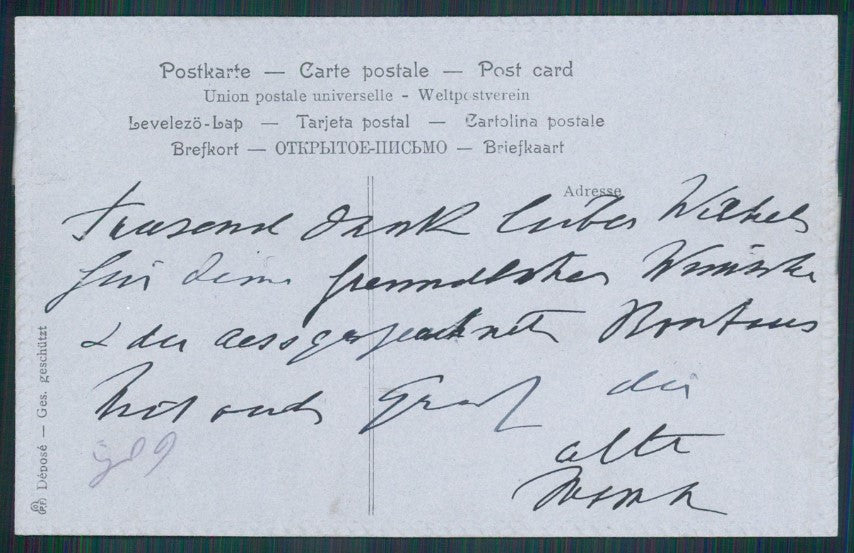 Postkarte — Carte postale — Post card
Union postale universelle - Weltpostverein
Levelezö-Lap — Tarjeta postal — Cartolina postale
Brefkort — ОТКРЫТОЕ-ПИСЬМО — Briefkaart
Adresse
Tausend Dank lieber
für deine freundlichen Wünsche
& den ausgezeichneten
Mit Gruß die
alte
Déposé — Ges. geschützt